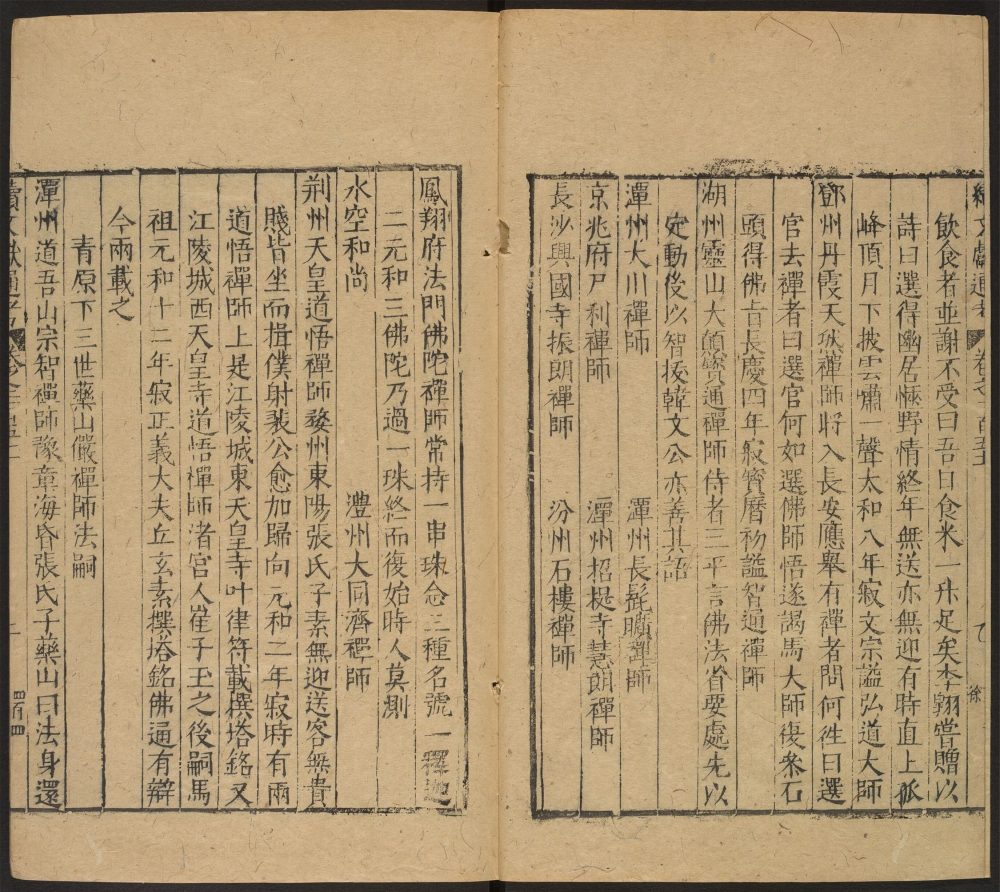 續文獻通考 卷之二百五十
乙 徐
飲食者並謝不受曰吾日食米一升足矣李翱嘗贈以
詩曰選得幽居愜野情終年無送亦無迎有時直上孤
峰頂月下披雲嘯一聲太和八年寂文宗謚弘道大師
鄧州丹霞天然禪師將入長安應舉有禪者問何徃曰選
官去禪者曰選官何如選佛師悟遂謁馬大師復參石
頭得佛旨長慶四年寂寳曆初謚智通禪師
湖州靈山大顛寳通禪師侍者三平言佛法省要處先以
定動後以智拔韓文公亦善其語
潭州大川禪師 潭州長髭曠禪師
京兆府尸利禪師 潭州招提寺慧朗禪師
長沙興國寺振朗禪師 汾州石樓禪師
鳳翔府法門佛陀禪師常持一串珠念三種名號一釋迦
二元和三佛陀乃過一珠終而復始時人莫測
水空和尚 澧州大同濟禪師
荆州天皇道悟禪師婺州東陽張氏子素無迎送客無貴
賤皆坐而揖僕射裴公愈加歸向元和二年寂時有兩
道悟禪師上是江陵城東天皇寺叶律符載撰塔銘又
江陵城西天皇寺道悟禪師渚宫人崔子玉之後嗣馬
祖元和十二年寂正義大夫丘玄素撰塔銘佛通有辯
今兩載之
青原下三世藥山儼禪師法嗣
潭州道吾山宗智禪師豫章海昏張氏子藥山曰法身還
續文獻通考 卷之